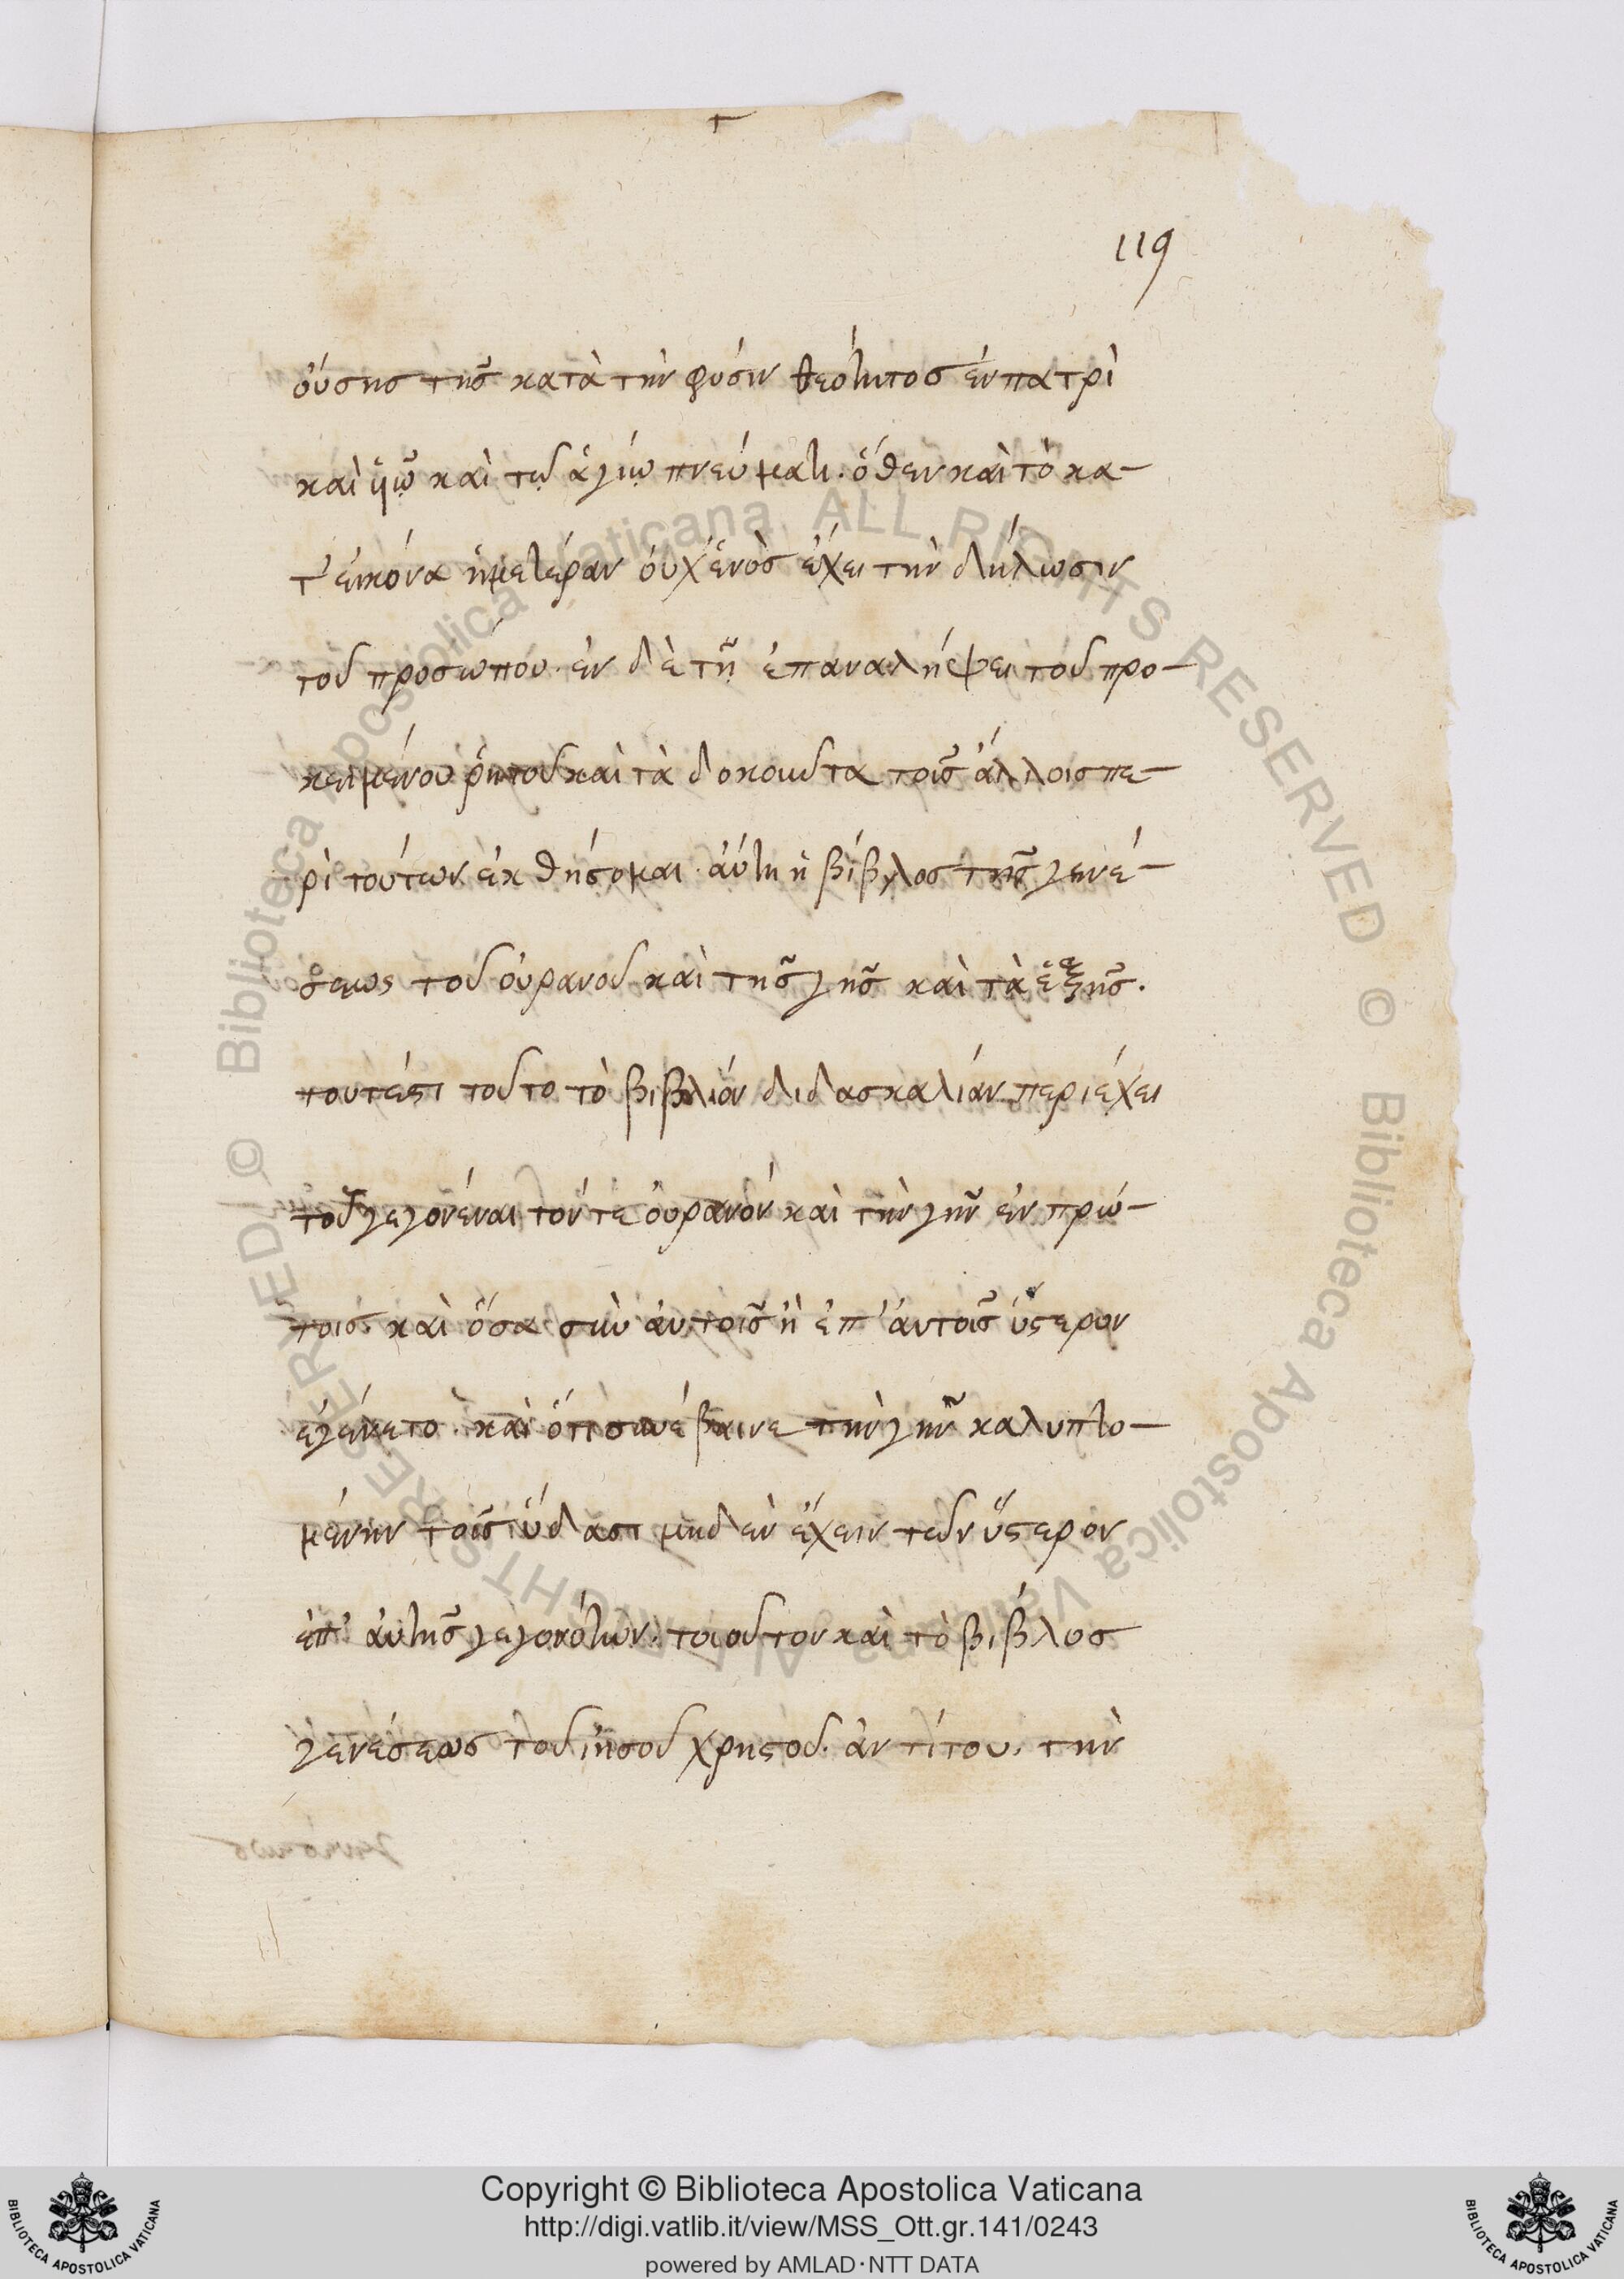 119
οὔσης τῆς κατὰ τὴν φύσιν θεότητος ἐν πατρὶ
καὶ υἱῷ καὶ τῷ ἁγίῳ πνεύματι· ὅθεν καὶ τὸ κα-
τ' εἰκόνα ἡμετέραν οὐχ ἑνὸς ἔχει τὴν δήλωσιν
τοῦ προσώπου· ἐν δὲ τῇ ἐπαναλήψει τοῦ προ-
κειμένου ῥητοῦ καὶ τὰ δοκοῦντα τοῖς ἄλλοις πε-
ρὶ τούτων ἐκθήσομαι· αὕτη ἡ βίβλος τῆς γενέ-
σεως τοῦ οὐρανοῦ καὶ τῆς γῆς καὶ τὰ ἑξῆς.
τουτέστι τοῦτο τὸ βιβλίον διδασκαλίαν περιέχει
τοῦ γεγονέναι τόν τε οὐρανόν καὶ τὴν γῆν ἐν πρώ-
τοις· καὶ ὅσα σὺν αὐτοῖς ἢ ἐπ' αὐτοῖς ὕστερον
ἐγένετο· καὶ ὅτι συνέβαινε τὴν γῆν καλυπτο-
μένην τοῖς ὕδασι μηδὲν ἔχειν τῶν ὕστερον
ἐπ' αὐτῆς γεγονότων· τοιοῦτον καὶ τὸ βίβλος
γενέσεως τοῦ ἰησοῦ χρηστοῦ· ἀντὶ του· τὴν
Copyright © Biblioteca Apostolica Vaticana
http://digi.vatlib.it/view/MSS_Ott.gr.141/0243
powered by AMLAD·NTT DATA